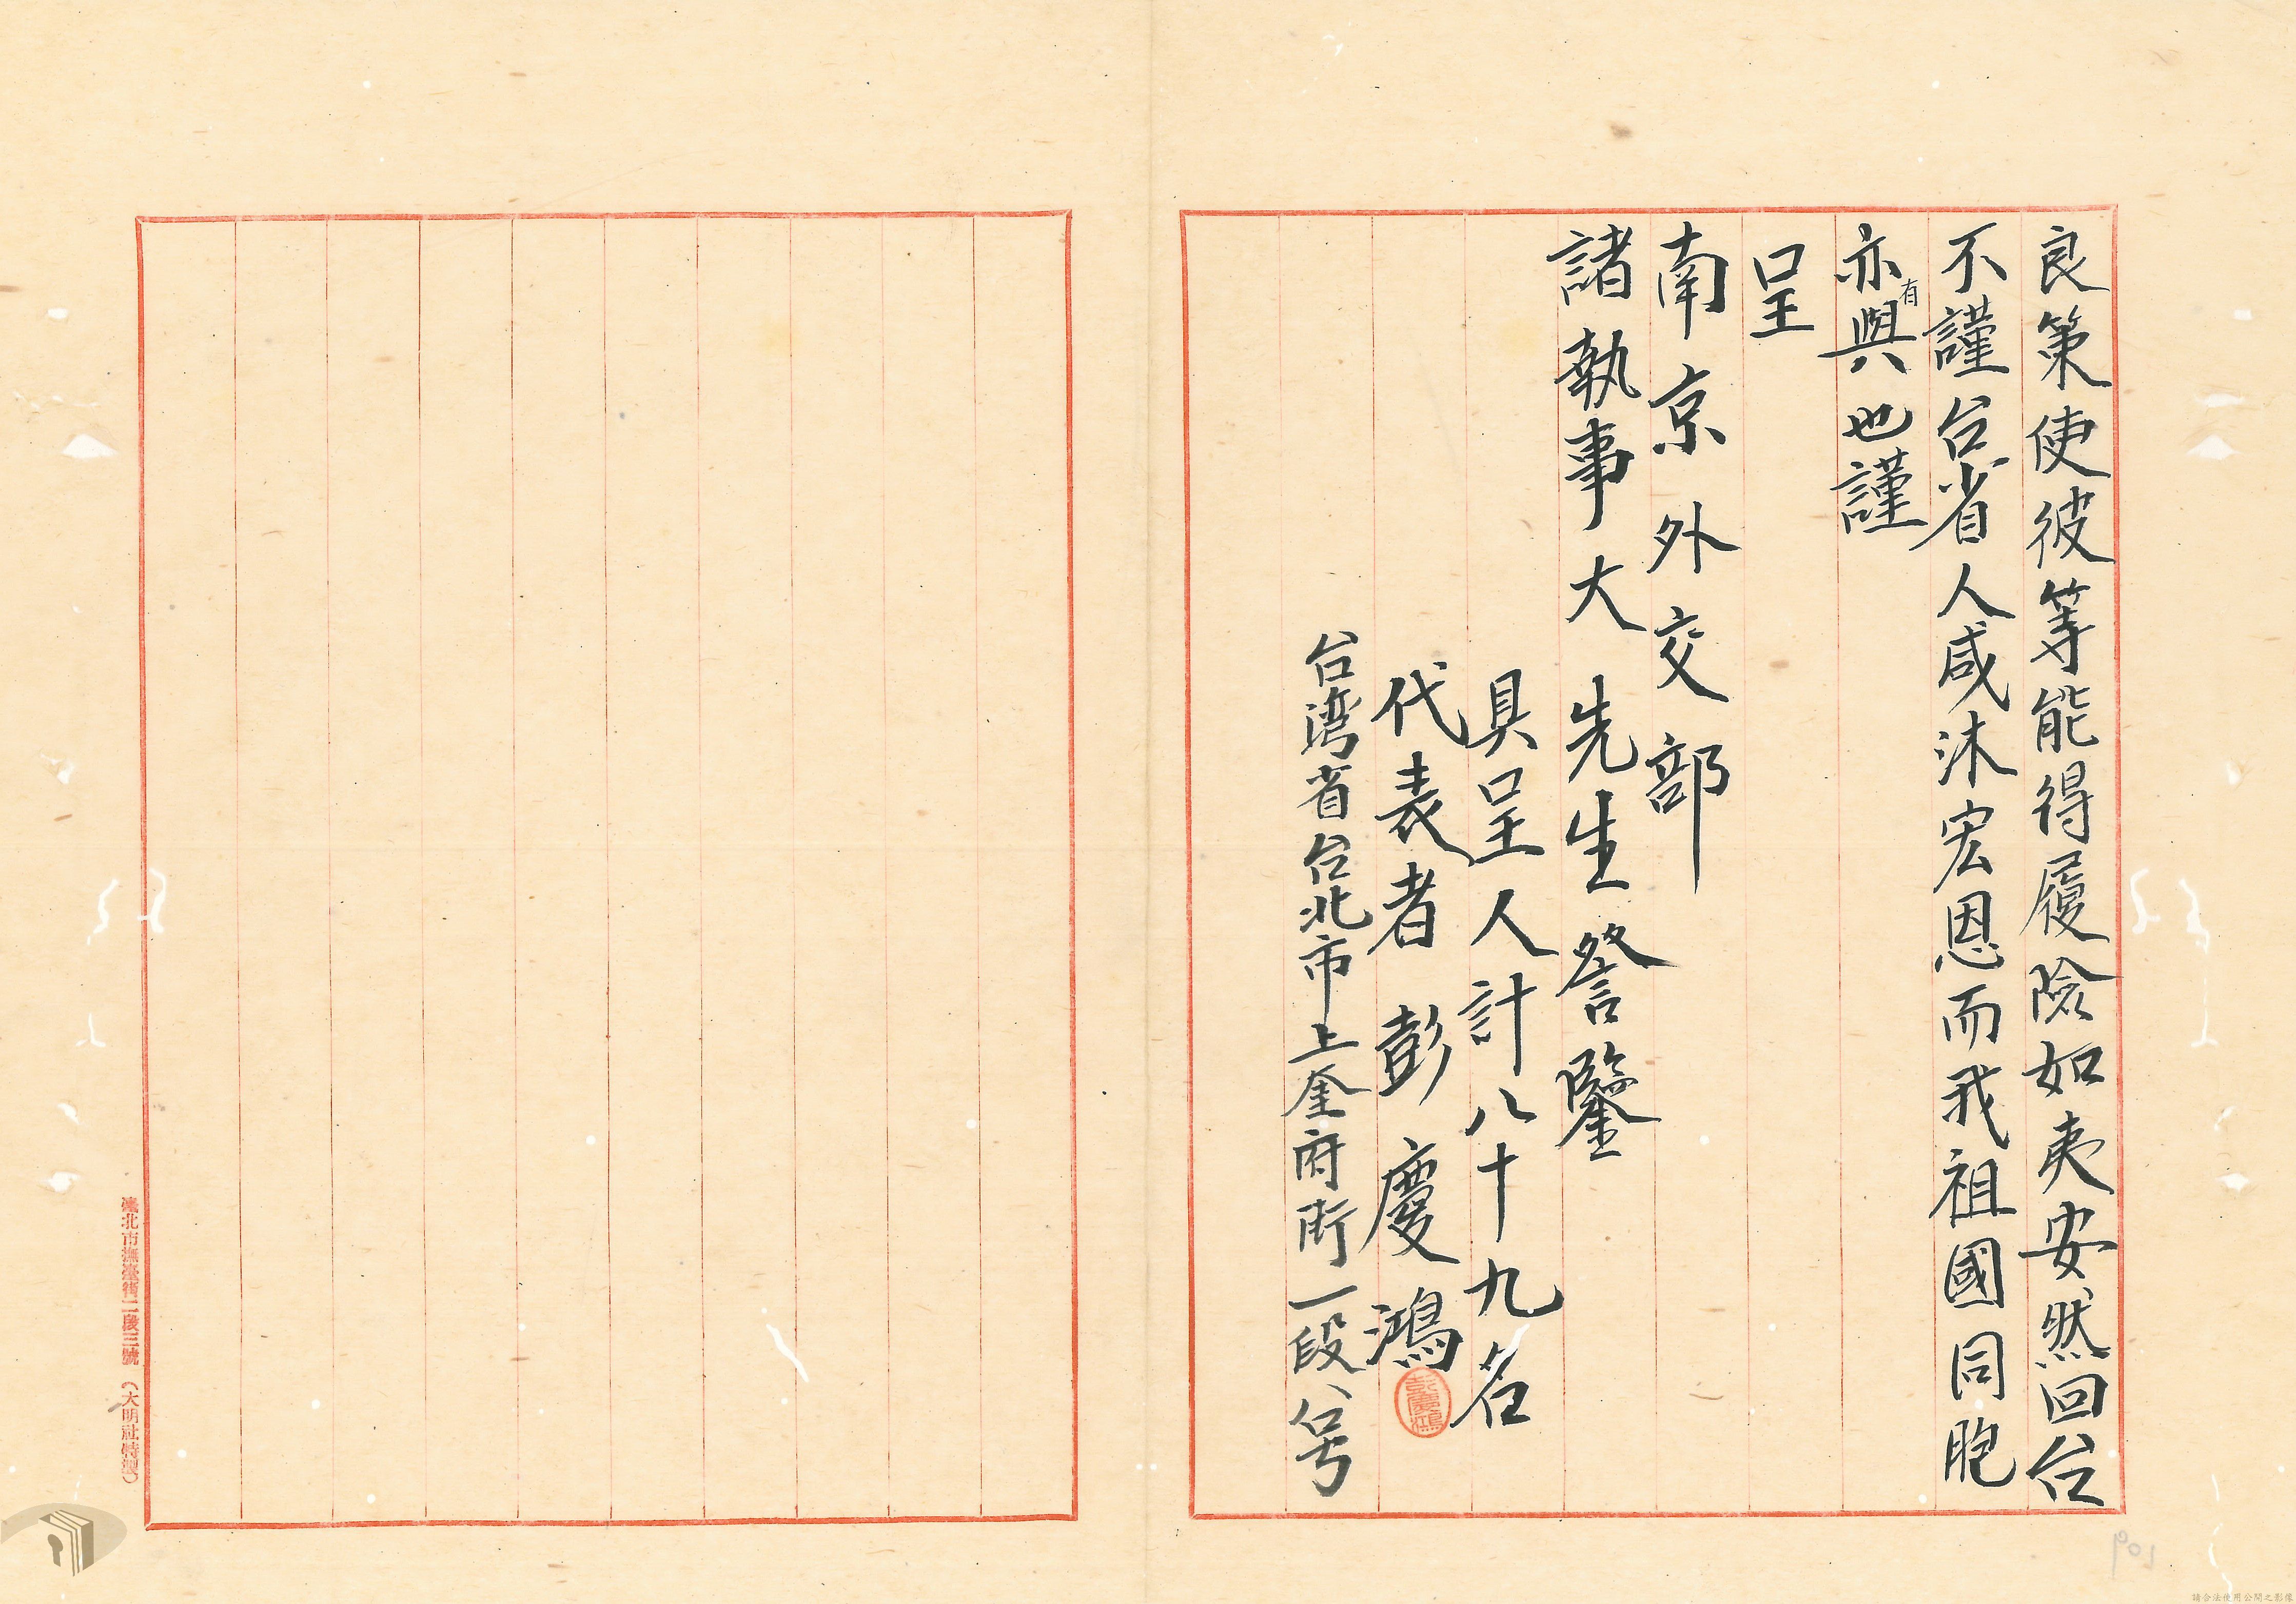 良策使彼等能得履險如夷安然回台
不謹台省人咸沐宏恩而我祖國同胞
亦有與也謹
呈
南京外交部
諸執事大先生詧鑒
具呈人計八十九名
代表者 彭慶鴻
彭慶鴻
台湾省台北市上奎府街一段八号
臺北市撫臺街二段三號（大明社特製）
109
請合法使用公開之影像